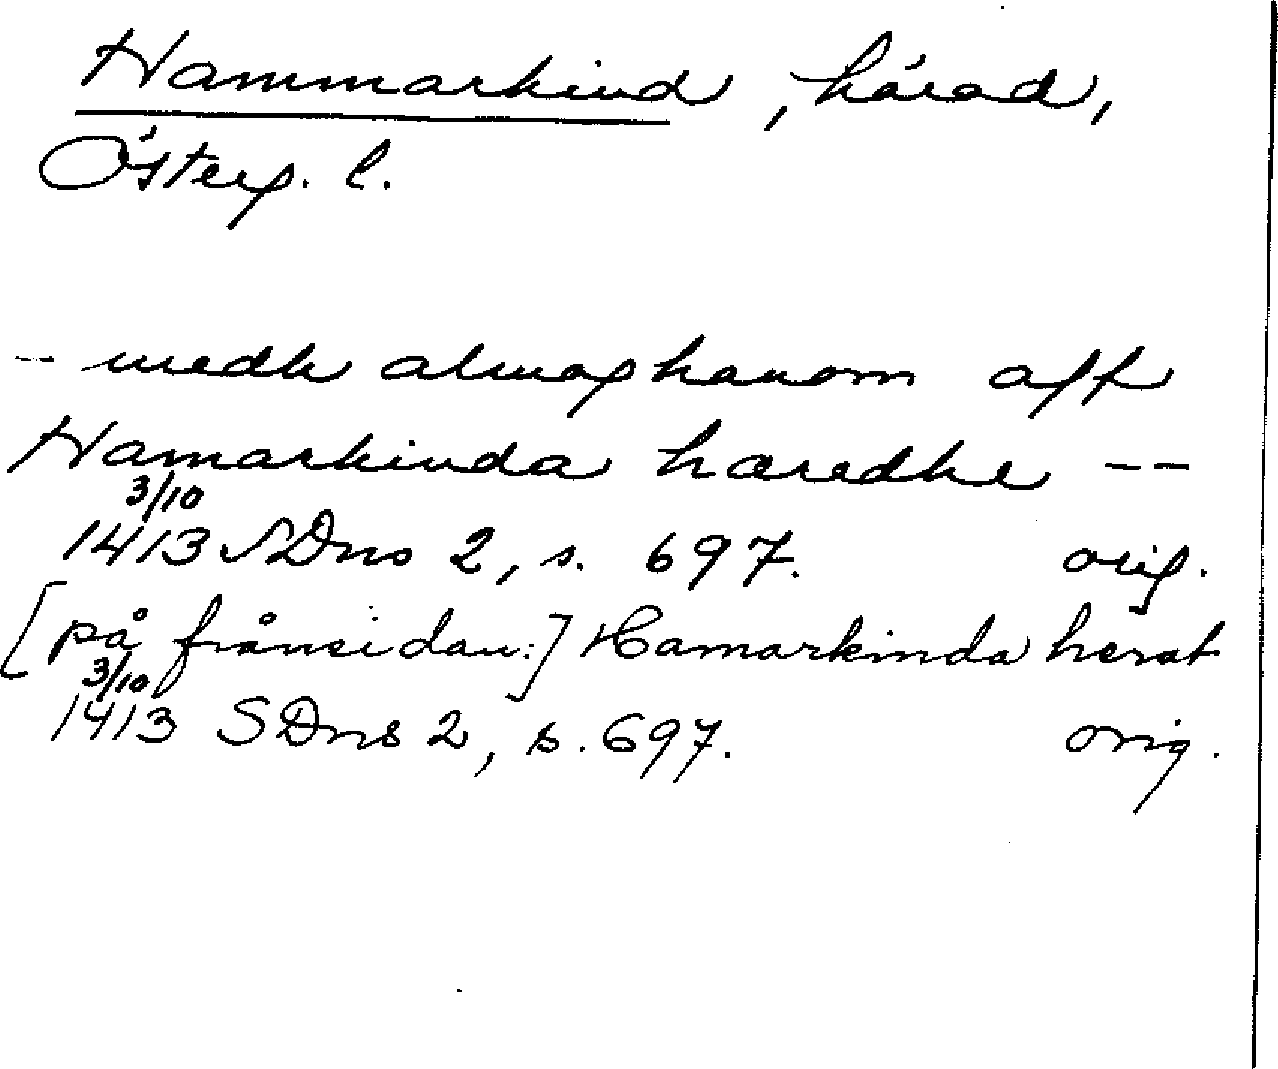 Hammarkind, härad,
Österg. l.
-- medh almoghanom aff
Hamarkinda hæredhe --
3/10
1413 SDns 2, s. 697. orig.
[på frånsidan:] Hamarkinda herat
3/10
1413 SDns 2, s. 697. orig.